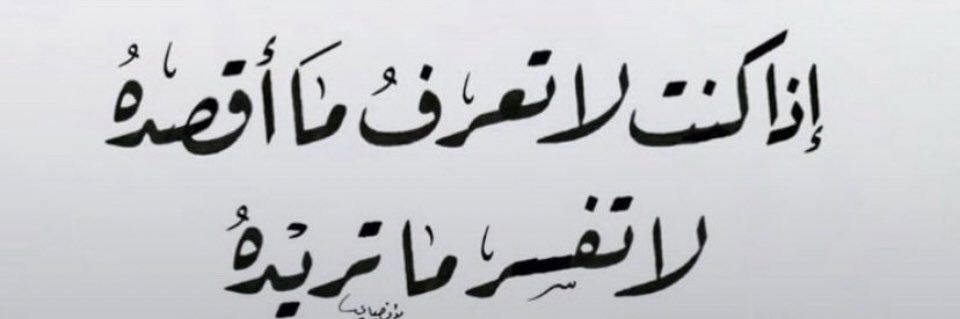 إذا كنت لا تعرفُ ما أقصدهُ
لا تفسر ما تريدهُ